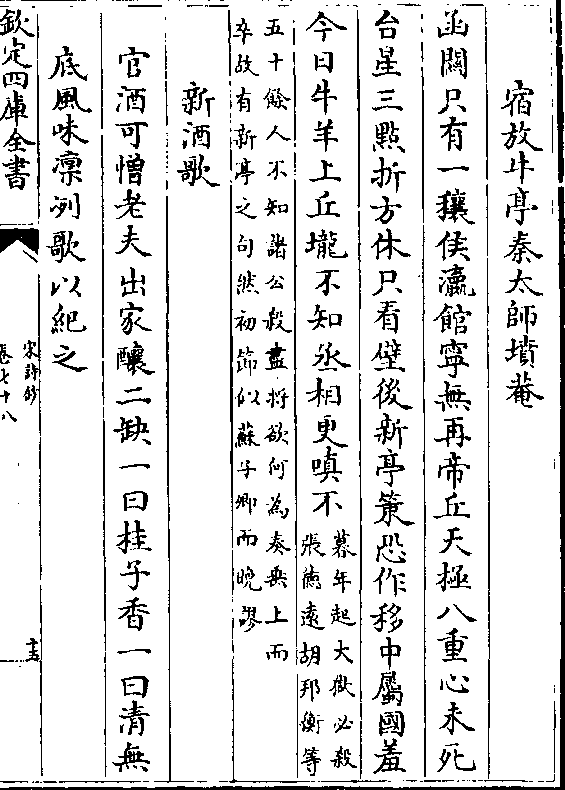 宿放牛亭秦太師墳菴
函關只有一穰侯瀛館寧無再帝丘天極八重心未死
台星三點折方休只看壁後新亭策恐作移中屬國羞
今日牛羊上丘壠不知丞相更嗔不暮年起大獄必殺
張德遠胡邦衡等
五十餘人不知諸公殺盡將欲何為奏無上而
卒故有新亭之句然初節似蘇子卿而晚謬
新酒歌
官酒可憎老夫出家釀二缺一曰桂子香一曰清無
底風味凛冽歌以紀之
欽定四庫全書
宋詩鈔
卷七十八
十五